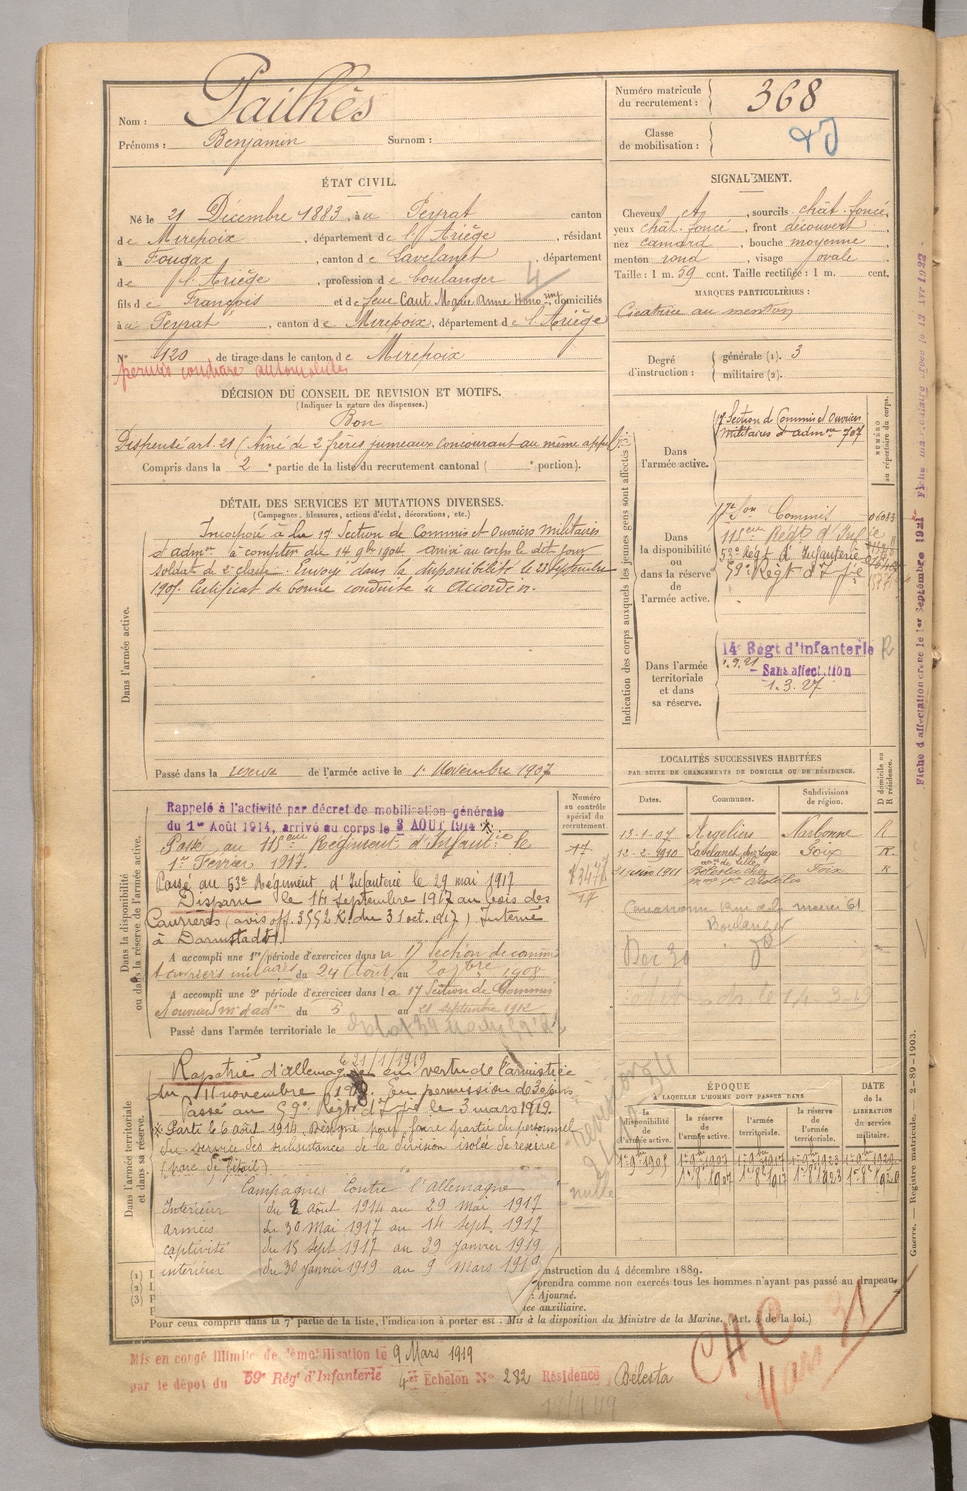 Nom : Pailhès
Prénoms : Benjamin Surnom :
Numéro matricule du recrutement : 368
Classe de mobilisation :
ÉTAT CIVIL.
Né le 21 Décembre 1883, à u Peyrat canton
de Mirepoix, département de l'Ariège, résidant
à Fougax, canton de Lavelanet, département
de l'Ariège, profession de boulanger
fils de François et de feue Caut Marie Anne domiciliés
à u Peyrat, canton de Mirepoix, département de l'Ariège
N° 120 de tirage dans le canton de Mirepoix
permis conduire automobiles
SIGNALEMENT.
Cheveux, sourcils chât. foncé,
yeux chât. foncé, front découvert,
nez camard, bouche moyenne,
menton rond, visage ovale.
Taille : 1 m. 59 cent. Taille rectifiée : 1 m. cent.
MARQUES PARTICULIÈRES :
Cicatrice au menton
Degré d'instruction : générale (1). 3
militaire (2).
DÉCISION DU CONSEIL DE REVISION ET MOTIFS.
(Indiquer la nature des dispenses.)
Bon
Dispensé art. 21 (Aîné de 2 frères jumeaux concourant au même appel)
Compris dans la 2e partie de la liste du recrutement cantonal ( e portion).
DÉTAIL DES SERVICES ET MUTATIONS DIVERSES.
(Campagnes, blessures, actions d'éclat, décorations, etc.)
Dans l'armée active.
Incorporé à la 17 Section de Commis et Ouvriers Militaires
d'admon à compter du 14 9bre 1904, arrivé au corps le dit jour
soldat de 2e classe. Envoyé dans la disponibilité le 28 septembre
1905. Certificat de bonne conduite « Accordé ».
Passé dans la reserve de l'armée active le 1er Novembre 1907
Indication des corps auxquels les jeunes gens sont affectés :
NUMÉRO au répertoire du corps.
Dans l'armée active.
17 Section d Commis et Ouvriers
Militaires d'admon 707
Dans la disponibilité ou dans la réserve de l'armée active.
17e Son Commis
115ème Régt d'Infie
53e Régt d'Infanterie
59e Régt d'Ifie
Dans l'armée territoriale et dans sa réserve.
14e Régt d'Infanterie
1.9.21
Sans affectation
1.3.27
Fiche d'affectation créée le 1er Septembre 1921
Dans la disponibilité ou dans la réserve de l'armée active.
Rappelé à l'activité par décret de mobilisation générale
du 1er Août 1914, arrivé au corps le 3 AOUT 1914
Passé au 115ème Régiment d'Infanterie le
1er Février 1917.
Passé au 53e Régiment d'Infanterie le 29 mai 1917
Disparu le 15 septembre 1917 au bois des
Caurières (avis off. 3552 K. du 31 oct. 1917) Interné
à Darmstadt.
A accompli une 1re période d'exercices dans la 17 Section de commis
du 24 Août au 20 7bre 1908
A accompli une 2e période d'exercices dans la 17 Section de Commis
du 5 au 21 septembre 1912
Passé dans l'armée territoriale le
Numéro au contrôle spécial du recrutement.
LOCALITÉS SUCCESSIVES HABITÉES
PAR SUITE DE CHANGEMENTS DE DOMICILE OU DE RÉSIDENCE.
Dates. Communes. Subdivisions de région. D domicile ou R résidence.
13-1-07 Argeliers Narbonne R
12-2-1910 Lavelanet Foix R.
1911 Bélesta chez Foix R
Boulanger
Dans l'armée territoriale et dans sa réserve.
Rapatrié d'allemagne le 21/1/1919 en vertu de l'armistice
du 11 novembre 1918. En permission de 30 jours
Passé au 59e Régt d'Ifie le 3 mars 1919.
Parti le 6 août 1914. Désigné pour faire partie du personnel
du service des subsistances de la division isolée de réserve
(parc de bétail)
Campagnes Contre l'allemagne
Intérieur du 2 août 1914 au 29 mai 1917
armées du 30 Mai 1917 au 14 sept. 1917
captivité du 15 sept 1917 au 29 janvier 1919
intérieur du 30 janvier 1919 au 9 mars 1919
nulle
ÉPOQUE
A LAQUELLE L'HOMME DOIT PASSER DANS
la disponibilité de l'armée active.
la réserve de l'armée active.
l'armée territoriale.
la réserve de l'armée territoriale.
DATE de la LIBÉRATION du service militaire.
1er 9bre 1905 1er 9bre 1907 1er 9bre 1917 1er 9bre 1923 1er 9bre 1929
1er 8bre 1907 1er 8bre 1913 1er 8bre 1923 1er 8bre 1929
instruction du 4 décembre 1889.
prendra comme non exercés tous les hommes n'ayant pas passé au drapeau.
: Ajourné.
ice auxiliaire.
Pour ceux compris dans la 7e partie de la liste, l'indication à porter est : Mis à la disposition du Ministre de la Marine. (Art. 4 de la loi.)
Guerre. — Registre matricule. 2-89-1903.
Mis en congé illimité de démobilisation le 9 Mars 1919
par le dépôt du 59e Régt d'Infanterie 4er Echelon N° 282 Résidence Bélesta